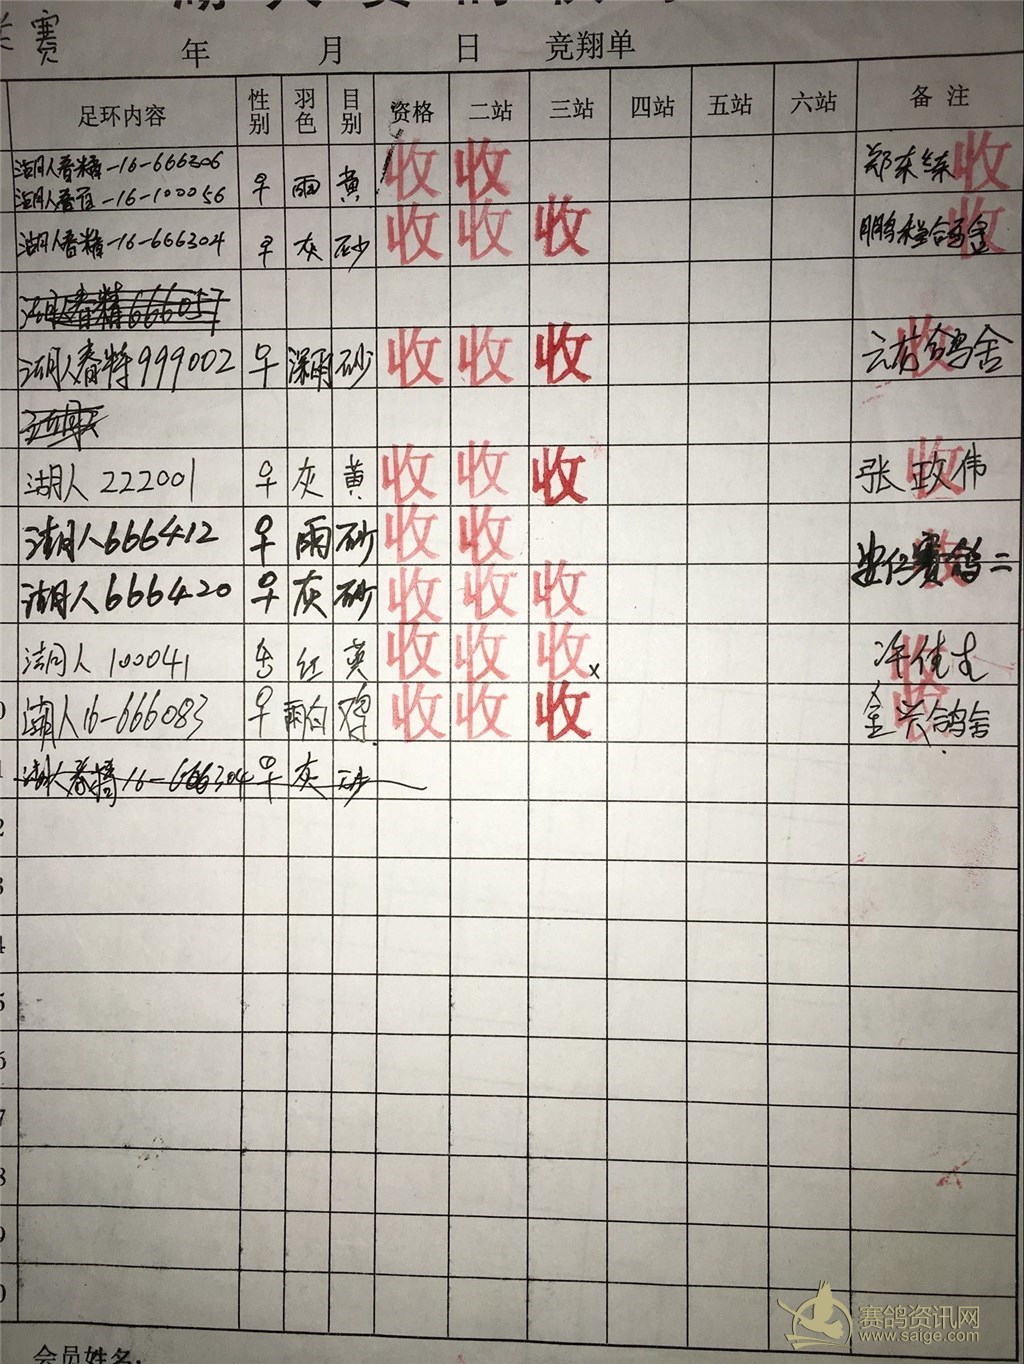 赛
年 月 日 竞翔单
足环内容 性别 羽色 目别 资格 二站 三站 四站 五站 六站 备注
湖人春精-16-666306 收 收 收
湖人春 -16-100056 ♀ 雨 黄
湖人春精-16-666304 ♀ 灰 砂 收 收 收 收
春精666057
湖人春特999002 ♀ 深雨 砂 收 收 收 云 鸽舍 收
湖人222001 ♀ 灰 黄 收 收 收 张政伟 收
湖人666412 ♀ 雨 砂 收 收 赛鸽二 收
湖人666420 ♀ 灰 砂 收 收 收
湖人100041 红 黄 收 收 收 x 许佳 收
湖人16-666083 ♀ 雨白 收 收 收 金兴鸽舍 收
湖人春精16-666304 ♀ 灰 砂
会员姓名:
赛鸽资讯网
www.saige.com